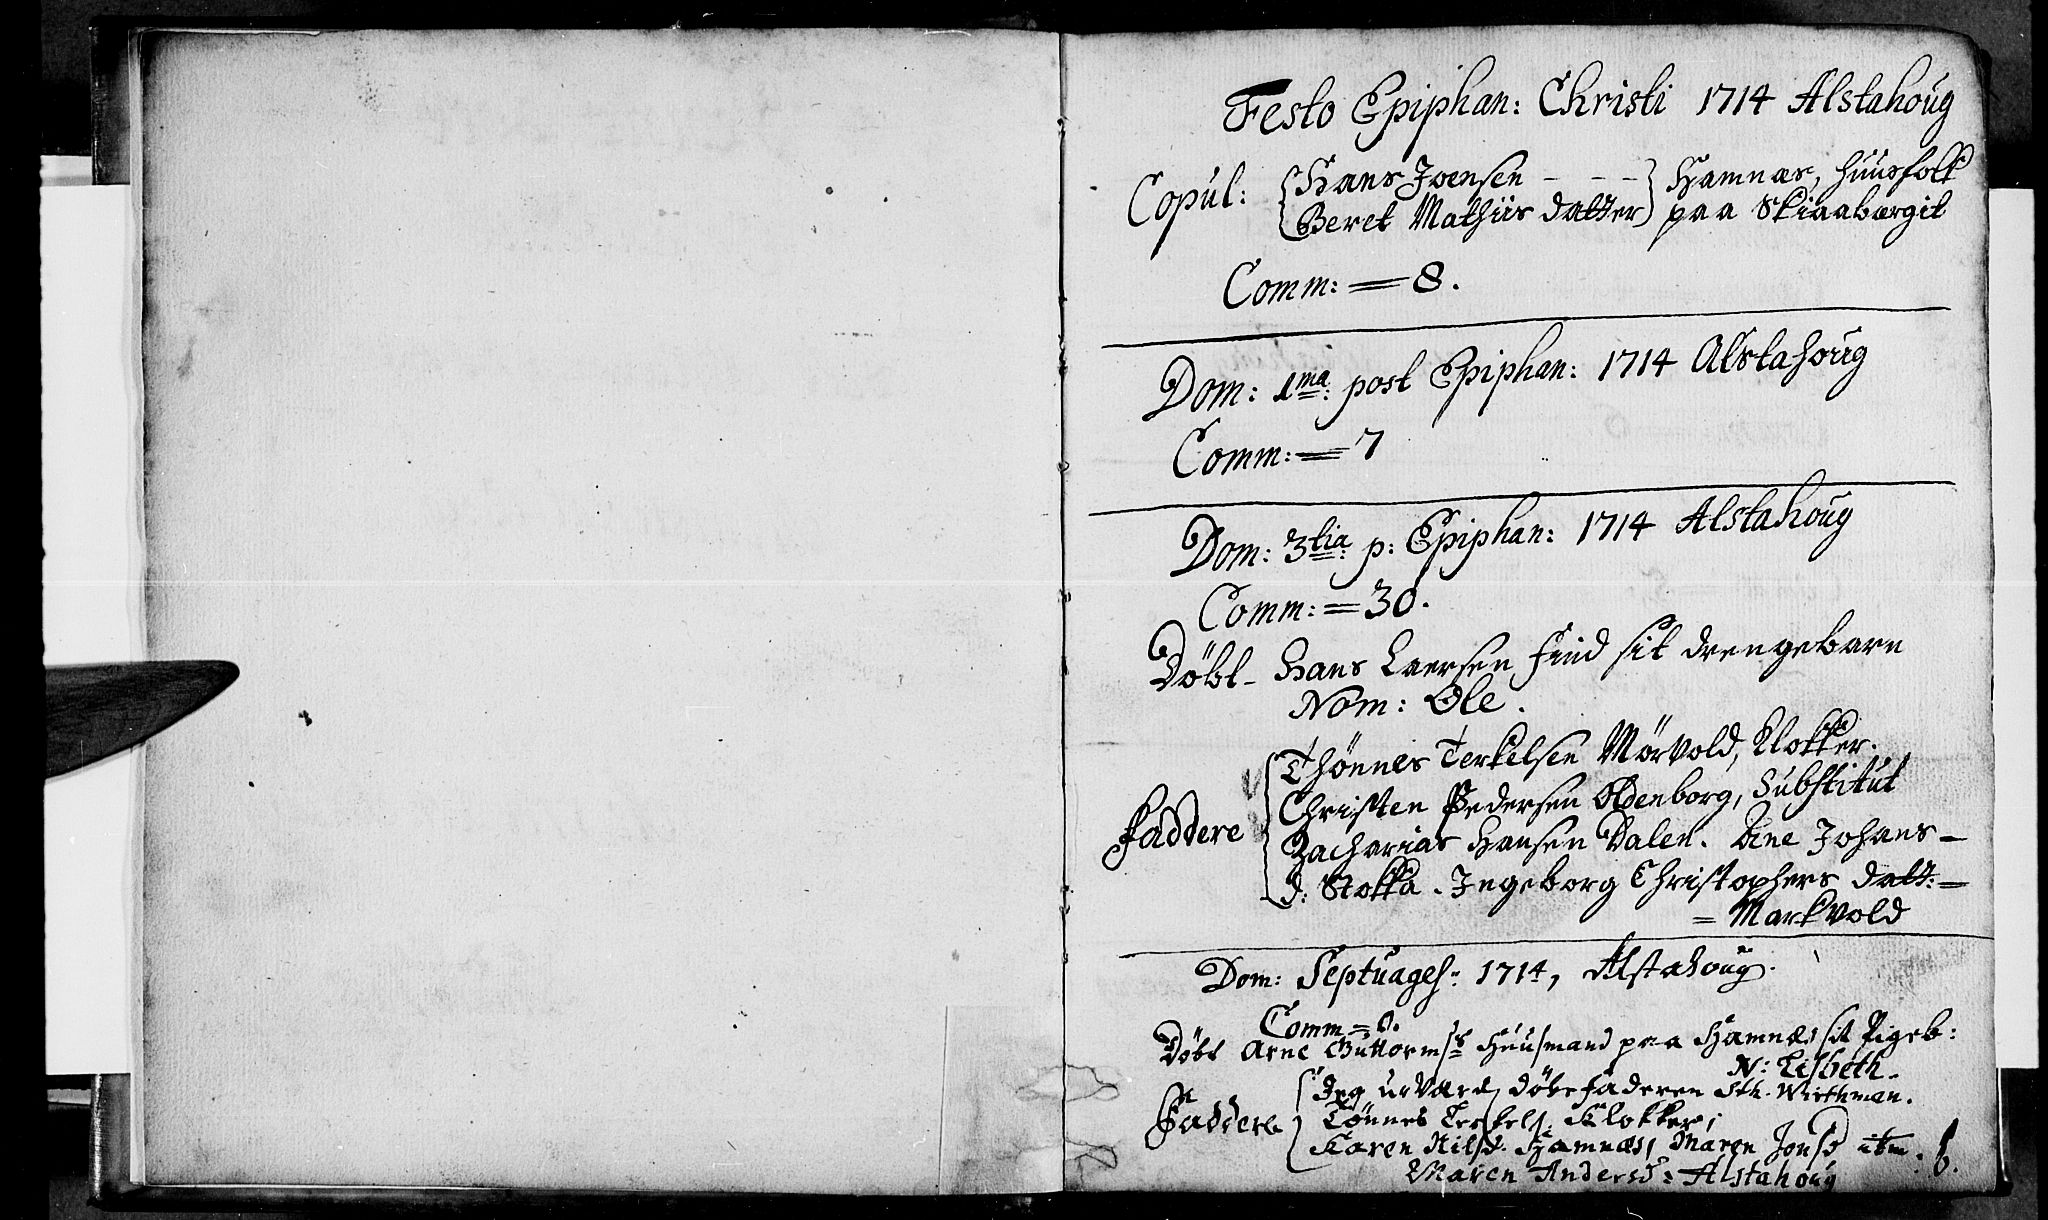 Festo Epiphan: Christi 1714 Alstahoug
Copul: Hans Joensen - - - Hamnæs, huusfolk
Beret Mathiis datter paa Skiaabærgit
Comm: = 8.
Dom: 1ma: post Epiphan: 1714 Alstahoug
Comm: = 7
Dom: 3tia: p: Epiphan: 1714 Alstahoug
Comm: = 30.
Döbt - Hans Laersen Find sit drengebarn
Nom: Ole.
Thönnes Terkelsen Mörvold, Klokker.
Christen Pedersen Oldenborg, Substitut
Faddere Zacharias Hansen Dalen. Ane Johans-
d: Stokka. Ingeborg Christophers datt:=
= Markvold
Dom: Septuages: 1714, Alstahoug.
Comm = 0.
Döbt Arne Guttorms: Huusmand paa Hamnæs sit Pigeb:
N: Lisbeth.
Jeg döbefaderen Sth. Wirthman.
Faddere Tönnes Terkels: Klokker;
Karen Nilsd. Hamnæs, Maren Jonsd itm.
Maren Andersd: Alstahoug